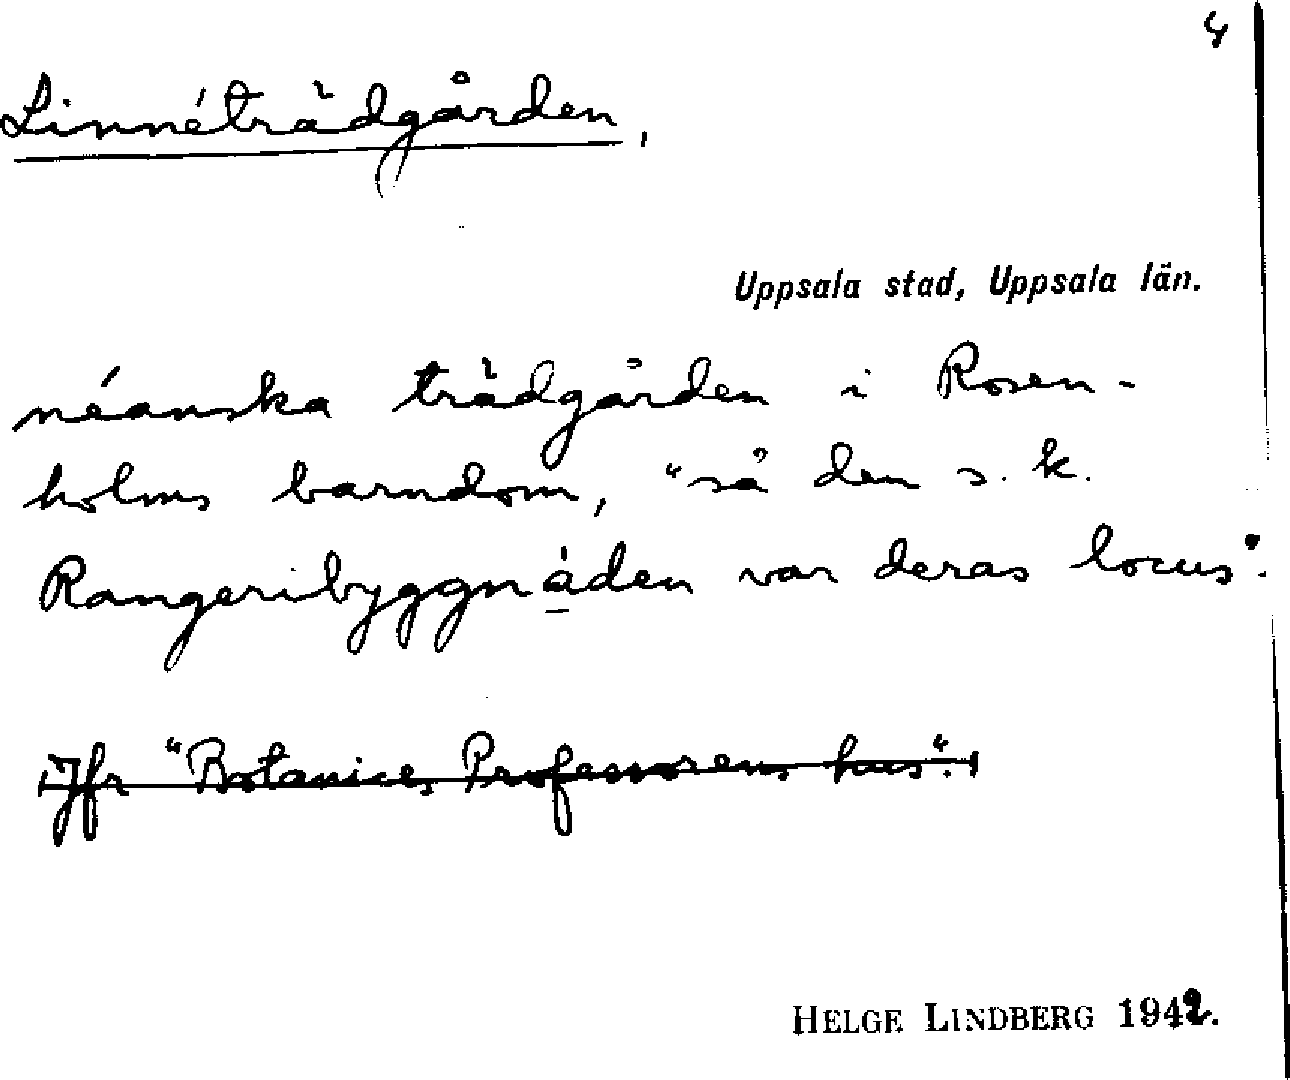 4
Linnéträdgården,
Uppsala stad, Uppsala län.
néanska trädgården i Rosen-
holms barndom, "så den s. k.
Rangeribyggnåden var deras locus".
Jfr "Botanices Professorens hus".
HELGE LINDBERG 1942.